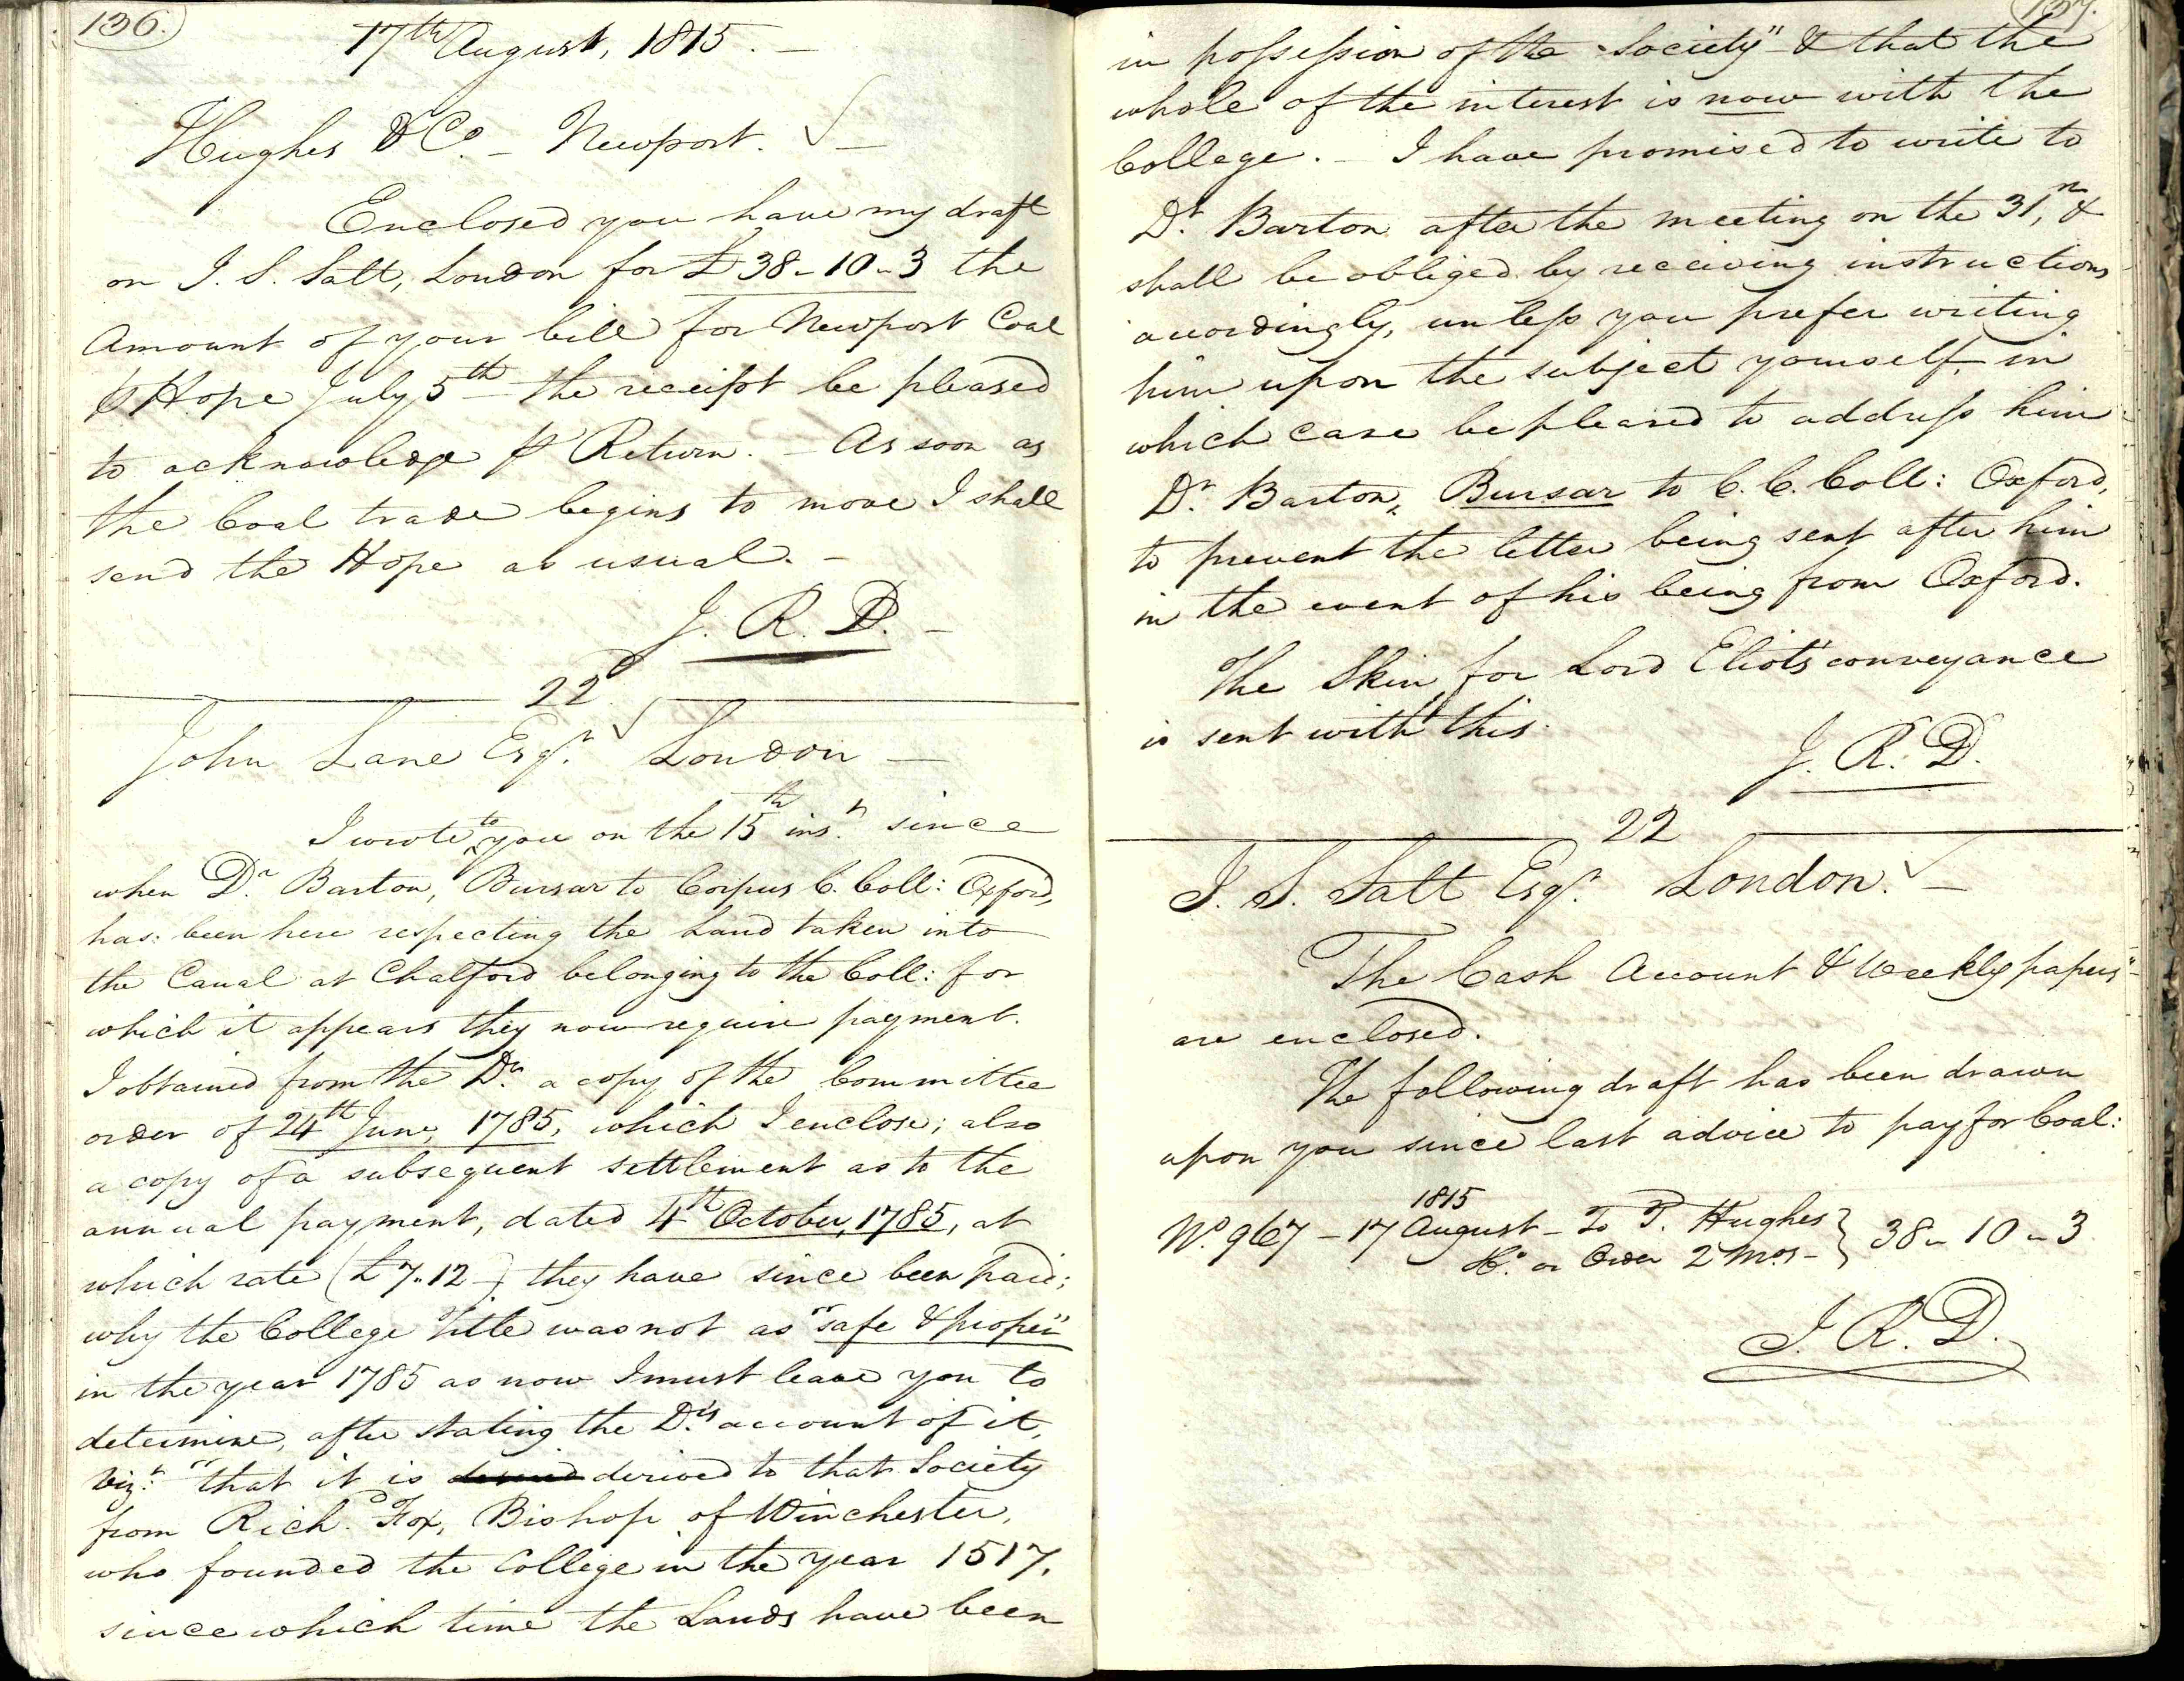 136.
17th August, 1815. -
Hughes & Co. - Newport. -
Enclosed you have my draft
on J. S. Salt, London for £38-10-3 the
Amount of your bill for Newport Coal
Hope July 5th the receipt be pleased
to acknowledge pr Return. - As soon as
the Coal trade begins to move I shall
send the Hope as usual. -
J. R. D. -
22
John Lane Esqr. London -
I wrote to you on the 15th inst. since
when Dr. Barton, Bursar to Corpus C. Coll: Oxford,
has been here respecting the Land taken into
the Canal at Chalford belonging to the Coll: for
which it appears they now require payment.
I obtained from the Dr. a copy of the Committee
order of 24th June, 1785, which I enclose; also
a copy of a subsequent settlement as to the
annual payment, dated 4th October, 1785, at
which rate (£7.12-) they have since been paid;
why the College Title was not as "safe & proper"
in the year 1785 as now I must leave you to
determine, after stating the Dr's. account of it,
Vizt. "that it is derived to that Society
from Richd. Fox, Bishop of Winchester,
who founded the College in the year 1517,
since which time the Lands have been
137.
in possession of the Society" & that the
whole of the interest is now with the
College. - I have promised to write to
Dr. Barton after the meeting on the 31, &
shall be obliged by receiving instructions
accordingly, unless you prefer writing
him upon the subject yourself, in
which case be pleased to address him
Dr. Barton, Bursar to C. C. Coll: Oxford,
to prevent the letter being sent after him
in the event of his being from Oxford.
The Skin for Lord Eliot's conveyance
is sent with this.
J. R. D.
22
J. S. Salt Esqr. London. -
The Cash Account & Weekly papers
are enclosed.
The following draft has been drawn
upon you since last advice to pay for Coal:
1815
No. 967 - 17 August - To T. Hughes } 38-10-3
& Co. or Order 2 Mos -
J. R. D.